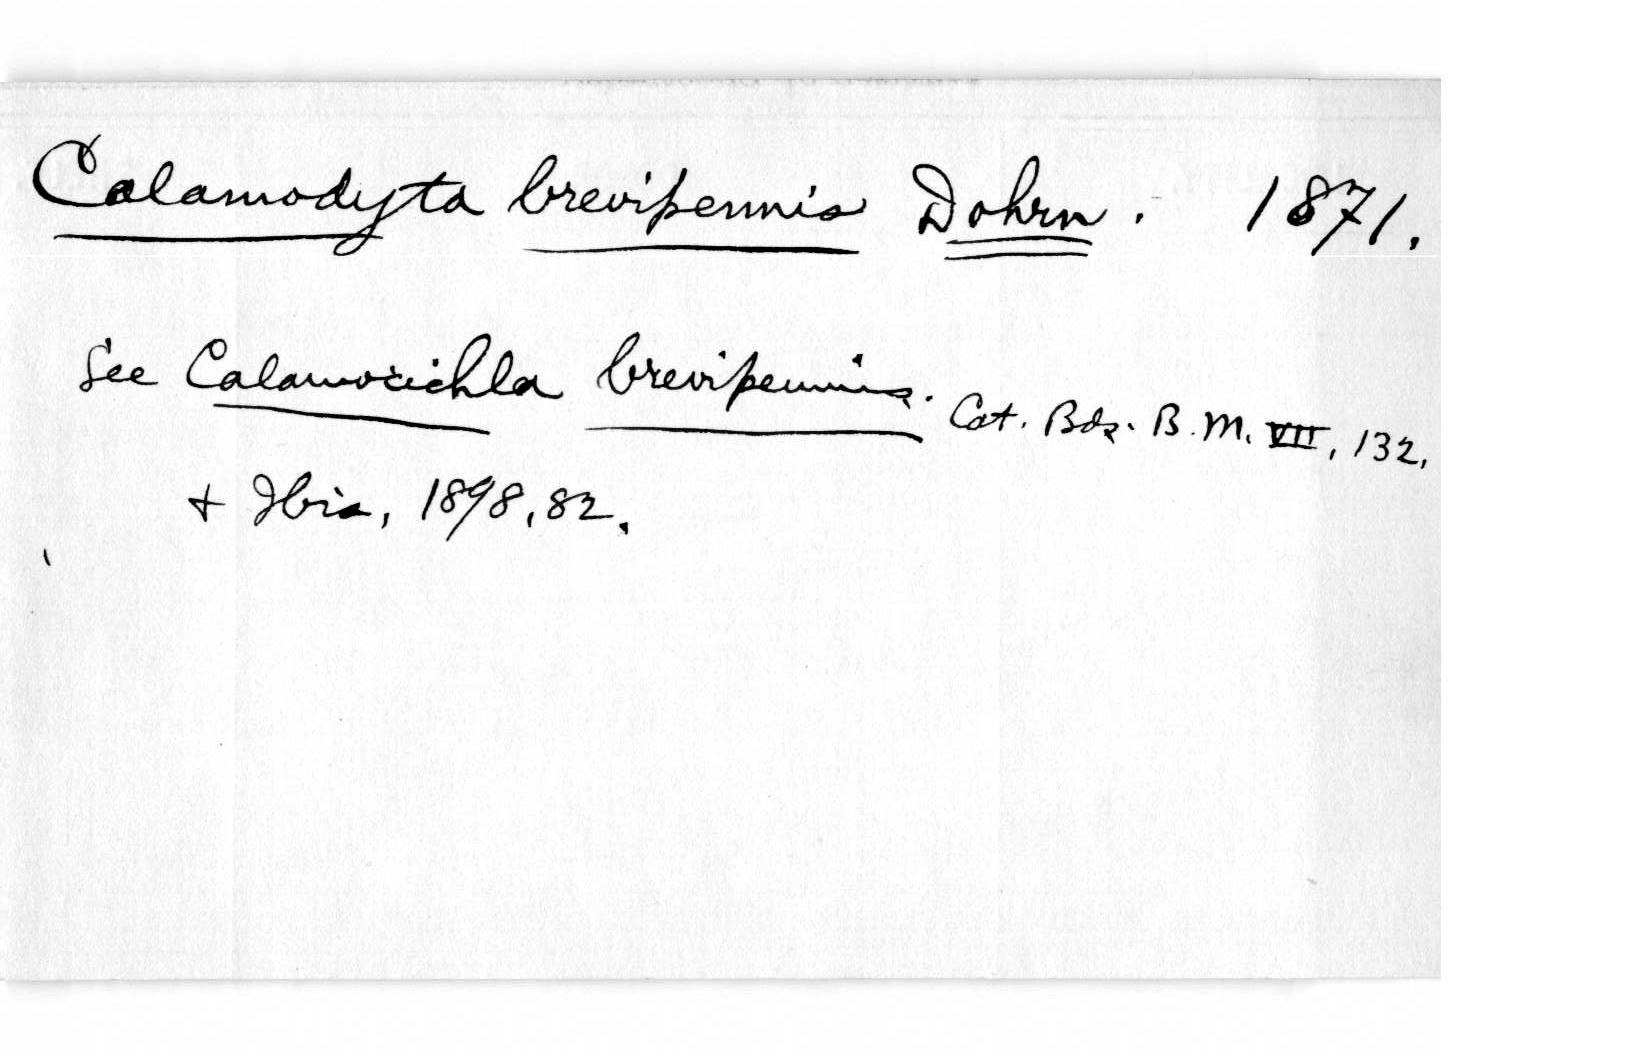 Calamodyta brevipennis Dohrn. 1871.
See Calamocichla brevipennis. Cat. Bds. B.M. VII, 132,
+ Ibis, 1898, 82.